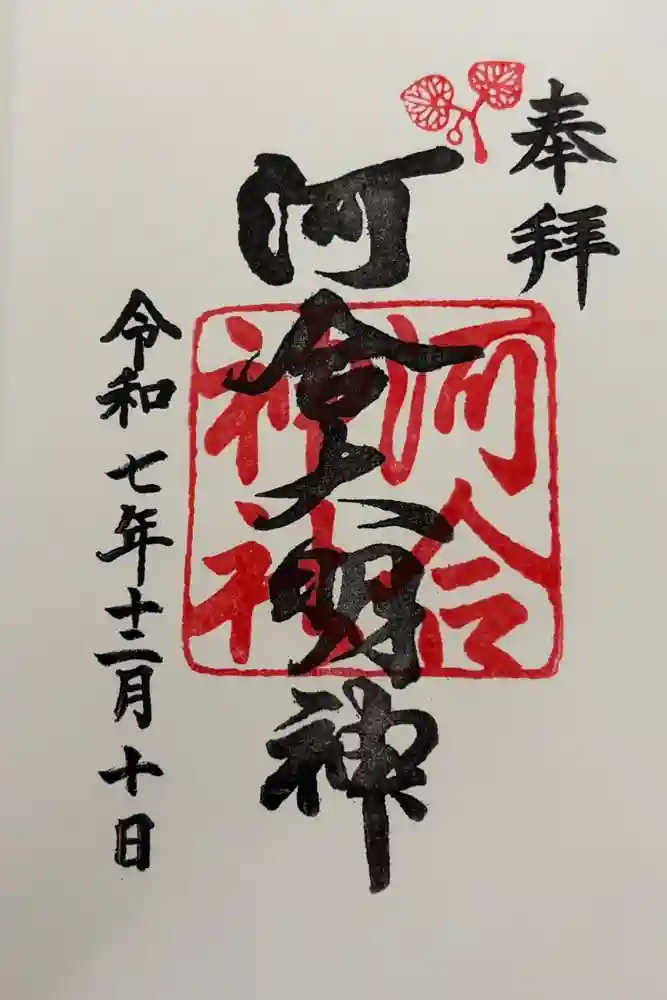 奉拝
河合大明神
河合
神社
令和七年十二月十日